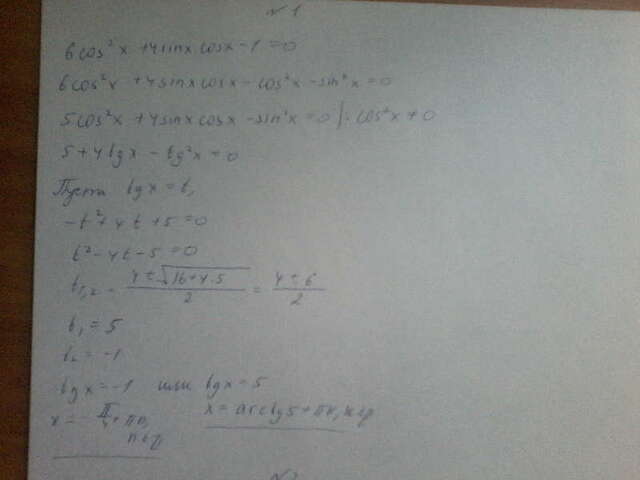 №1
6cos²x + 4sinx cosx - 1 = 0
6cos²x + 4sinx cosx - cos²x - sin²x = 0
5cos²x + 4sinx cosx - sin²x = 0 |: cos²x ≠ 0
5 + 4tgx - tg²x = 0
Пусть tgx = t,
-t² + 4t + 5 = 0
t² - 4t - 5 = 0
t₁,₂ = (4 ± √(16 + 4·5))/2 = (4 ± 6)/2
t₁ = 5
t₂ = -1
tgx = -1 или tgx = 5
x = -π/4 + πn, n∈z x = arctg5 + πk, k∈z
№2